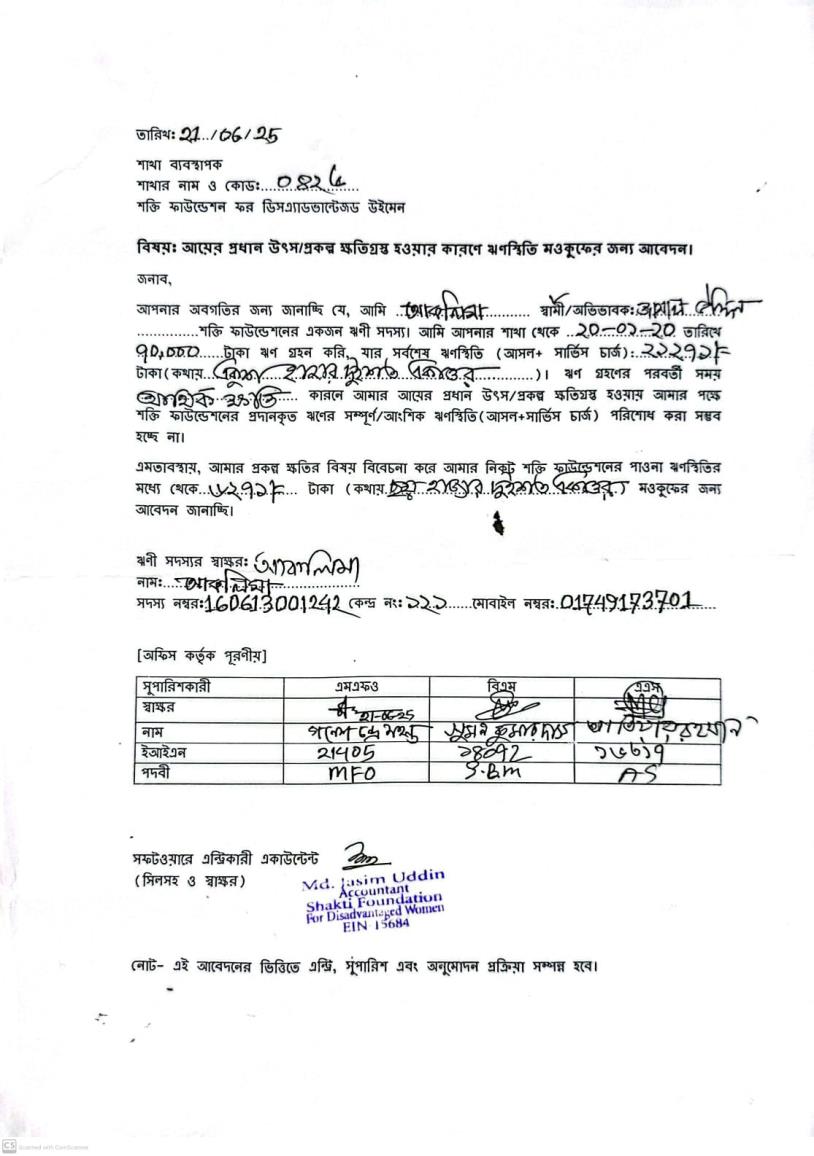 তারিখঃ 21/06/25
শাখা ব্যবস্থাপক
শাখার নাম ও কোডঃ.....0824.....
শক্তি ফাউন্ডেশন ফর ডিসএ্যাডভান্টেজড উইমেন
বিষয়ঃ আয়ের প্রধান উৎস/প্রকল্প ক্ষতিগ্রস্ত হওয়ার কারণে ঋণস্থিতি মওকুফের জন্য আবেদন।
জনাব,
আপনার অবগতির জন্য জানাচ্ছি যে, আমি ..আকলিমা.......... স্বামী/অভিভাবক:
...............শক্তি ফাউন্ডেশনের একজন ঋণী সদস্য। আমি আপনার শাখা থেকে ..২০-০২-২০ তারিখে
৭০,০০০.....টাকা ঋণ গ্রহন করি, যার সর্বশেষ ঋণস্থিতি (আসল+ সার্ভিস চার্জ):
টাকা(কথায়...হাজার দুইশত একাত্তর...........)। ঋণ গ্রহণের পরবর্তী সময়
আর্থিক ক্ষতি..... কারনে আমার আয়ের প্রধান উৎস/প্রকল্প ক্ষতিগ্রস্ত হওয়ায় আমার পক্ষে
শক্তি ফাউন্ডেশনের প্রদানকৃত ঋণের সম্পূর্ণ/আংশিক ঋণস্থিতি(আসল+সার্ভিস চার্জ) পরিশোধ করা সম্ভব
হচ্ছে না।
এমতাবস্থায়, আমার প্রকল্প ক্ষতির বিষয় বিবেচনা করে আমার নিকট শক্তি ফাউন্ডেশনের পাওনা ঋণস্থিতির
মধ্যে থেকে..৬২৭১/-... টাকা (কথায়.ছয় হাজার দুইশত একাত্তর) মওকুফের জন্য
আবেদন জানাচ্ছি।
ঋণী সদস্যর স্বাক্ষরঃ আকলিমা
নাম:...আকলিমা.............
সদস্য নম্বর:160613001242 কেন্দ্র নং:১২১......মোবাইল নম্বর:.01749173701....
[অফিস কর্তৃক পূরণীয়]
সুপারিশকারী এমএফও বিএম এএস
স্বাক্ষর 21-06-25
নাম সুমন কুমার দাস
ইআইএন 21405 ১৪০৭২ ১৬৬১৭
পদবী MFO S.BM AS
সফটওয়ারে এন্ট্রিকারী একাউন্টেন্ট
(সিলসহ ও স্বাক্ষর)
Md. Jasim Uddin
Accountant
Shakti Foundation
For Disadvantaged Women
EIN-15684
নোট- এই আবেদনের ভিত্তিতে এন্ট্রি, সুপারিশ এবং অনুমোদন প্রক্রিয়া সম্পন্ন হবে।
CS Scanned with CamScanner